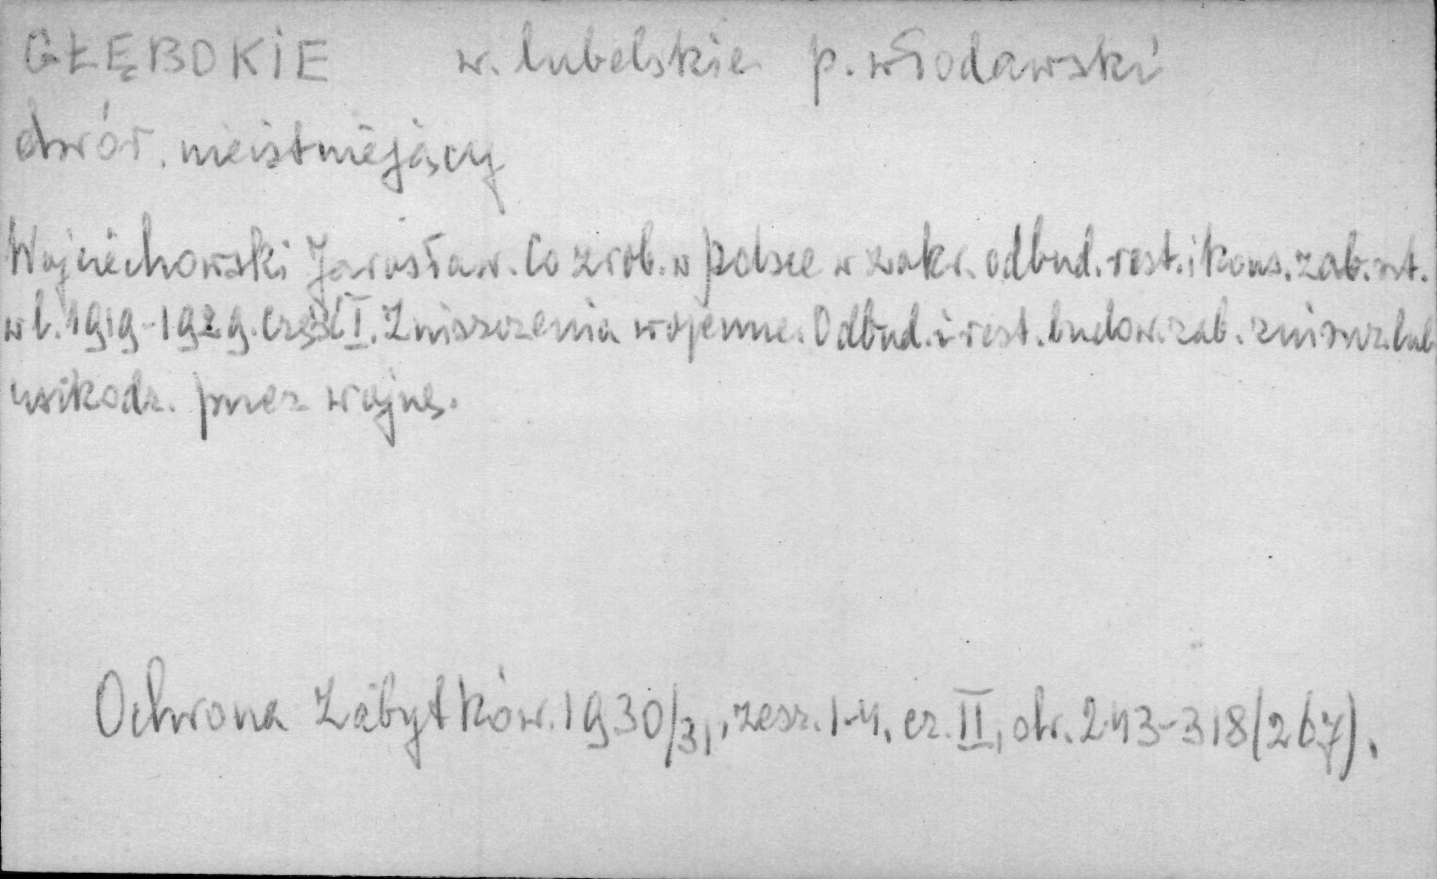 GŁĘBOKIE w. lubelskie p. włodawski
dwór. nieistniejący
Wojciechowski Jarosław. Co zrob. w Polsce w zakr. odbud. rest. i kons. zab. szt.
w l. 1919-1929. Część I. Zniszczenia wojenne. Odbud. i rest. budow. zab. zniszcz. lub
uszkodz. przez wojnę.
Ochrona Zabytków. 1930/31, zesz. 1-4, cz. II, str. 243-318 (267).